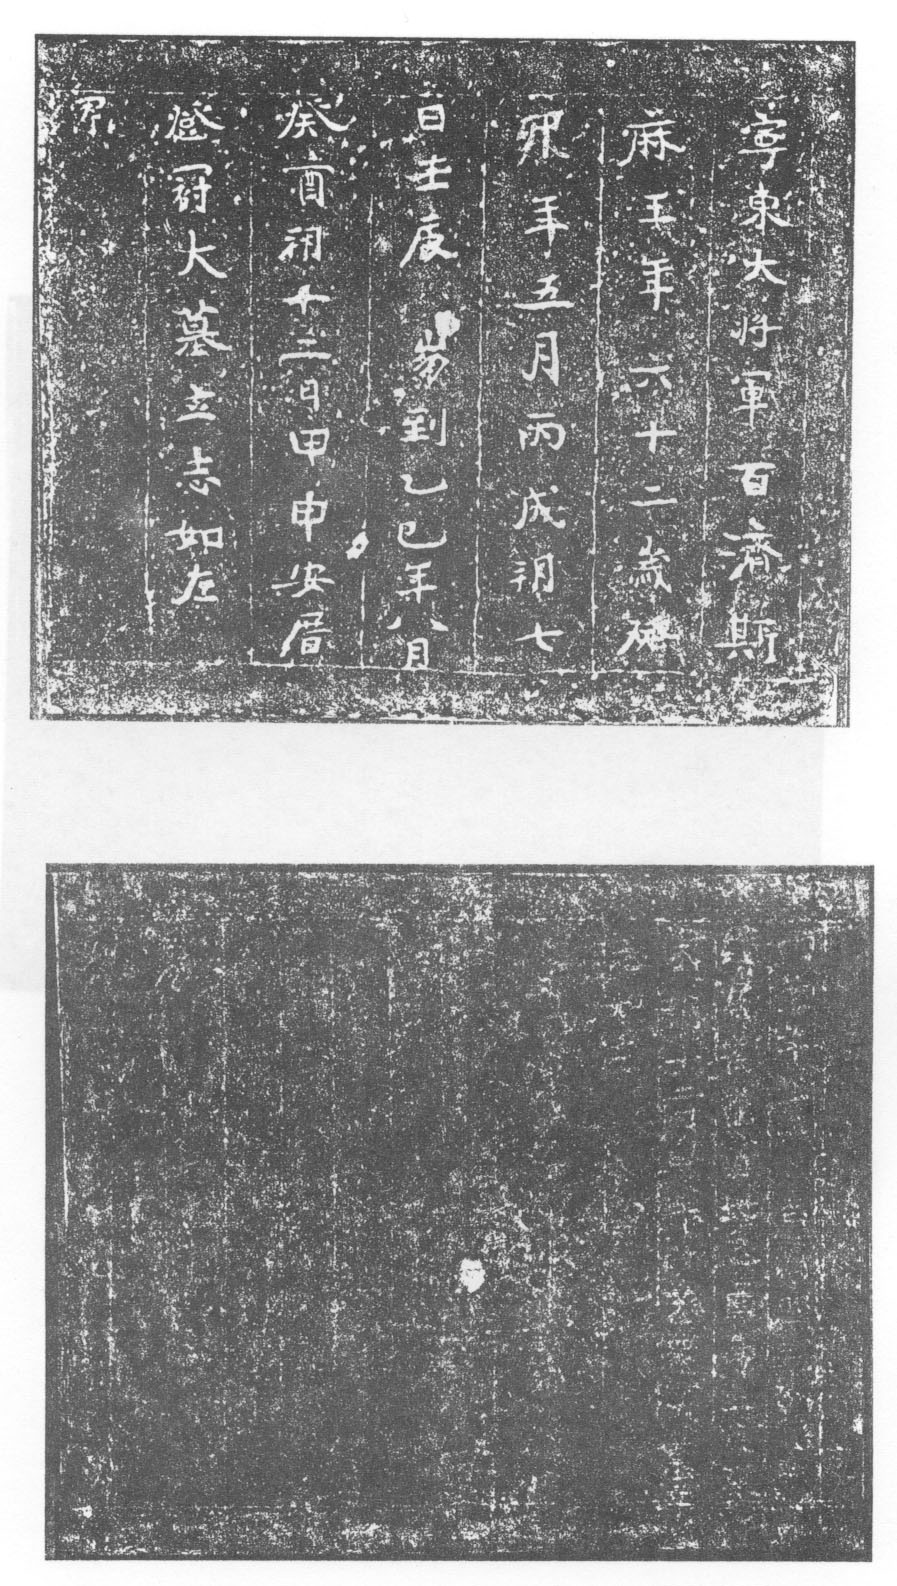 寧東大将軍百濟斯
麻王年六十二歳癸
卯年五月丙戌朔七
日壬辰崩到乙巳年八月
癸酉朔十二日甲申安厝
登冠大墓立志如左